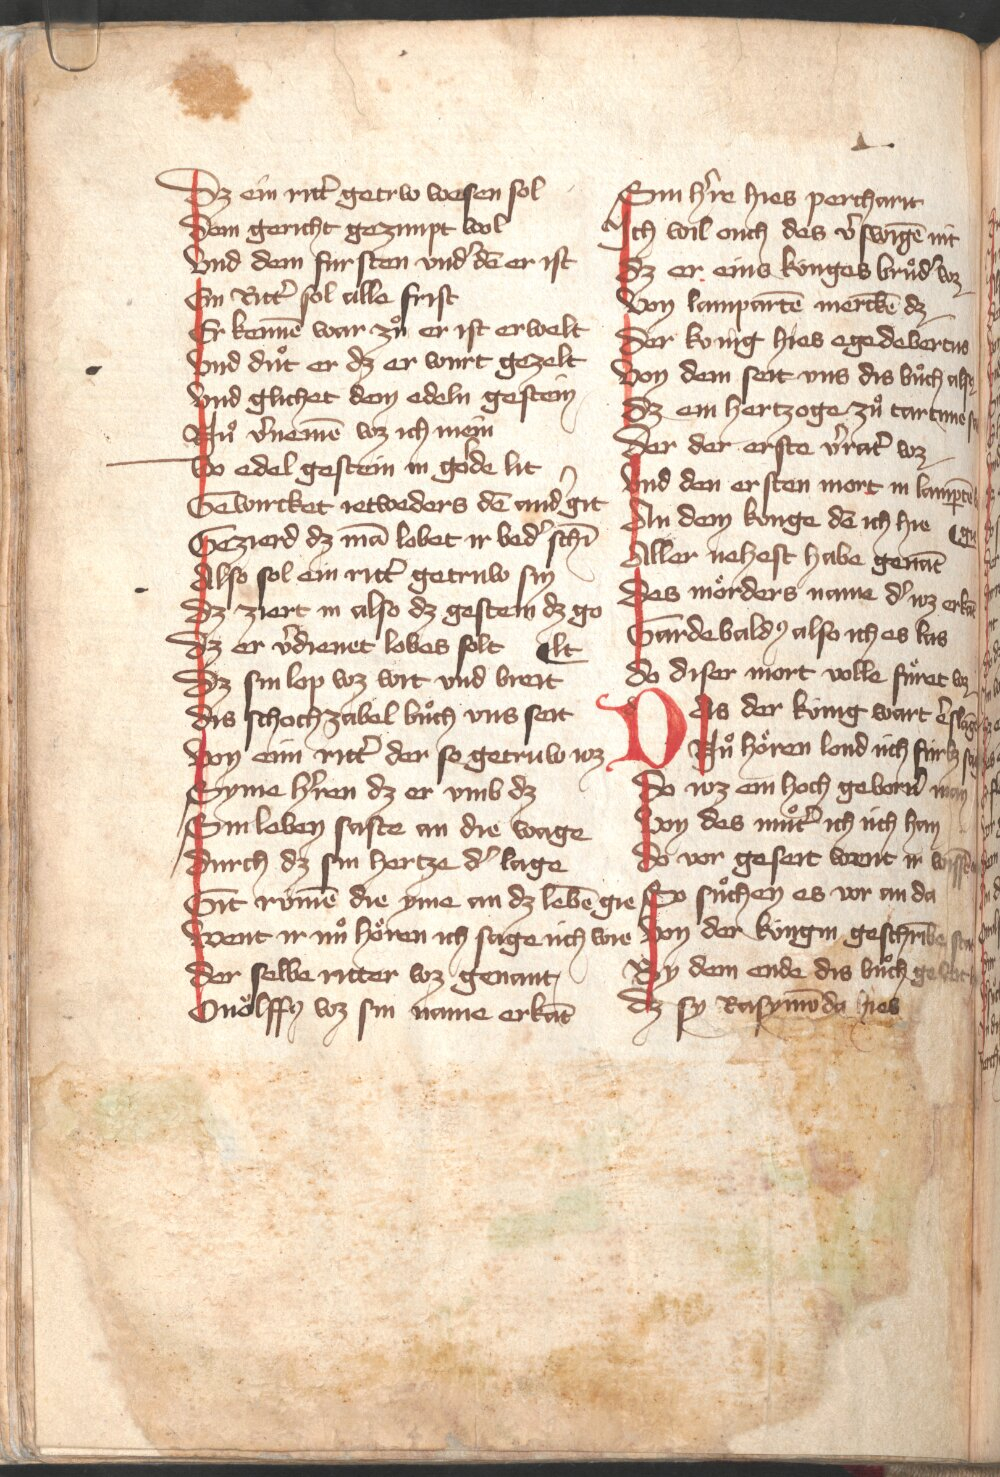 Dz ein ritt̓ getrw wesen sol
Dem gericht gezimpt wol
Vnd dem fursten vnd̓ dē er ist
Ein Ritt̓ sol alle frist
Erkennē war zů er ist erwelt
Vnd důt er dz er wurt gezelt
Vnd glichet dem edeln gestein
Nů v̓nemē wz ich mein
So edel gestein in golde lit
Gewircket ietweders dē and̓ git
Gezierd dz mā lobet ir bed̓ schī
Also sol ein ritt̓ getruw sin
Dz ziert in also dz gestein dz go
Dz er v̓dienet lobes solt lt
Dz sin lop wz wit vnd breit
Dis schochzabel bůch vns seit
Von eim ritt̓ der so getruw wz
Syme h̓ren dz er vmb dz
Sin leben saste an die wage
Durch dz sin hertze d̓ lage
Git rümē die yme an dz lebē gie
Went ir nů hören ich sage üch wie
Der selbe ritter wz genant
Onölffꝰ wz sin name erkāt
Sin h̓re hies percharit
Ich wil ouch des v̓swigē nit
Dz er eins künges brůd̓ wz
Von lampartē merckē dz
Der kunig hies egedebertus
Von dem seit vns dis bůch alsꝰ
Dz ein hertzoge zů tartune
Der der erste v̓rat̓ wz
Vnd den ersten mort in lampte
An dem künge dē ich hie
Aller nehest habe genāt
Des mörders name d̓ wz erkāt
Gardebaldꝰ also ich es las
Do diser mort volle füret wz
Das der künig wart e̓slage
Nů hören lond üch fürbz
So wz ein hoch geborn̓ man
Von des můt̓ ich üch han
Do vor geseit went ir wissē
So sůchen es vor an da
Von der küngin geschribē
By dem ende dis bůch
Dz sy Rasymōda hies